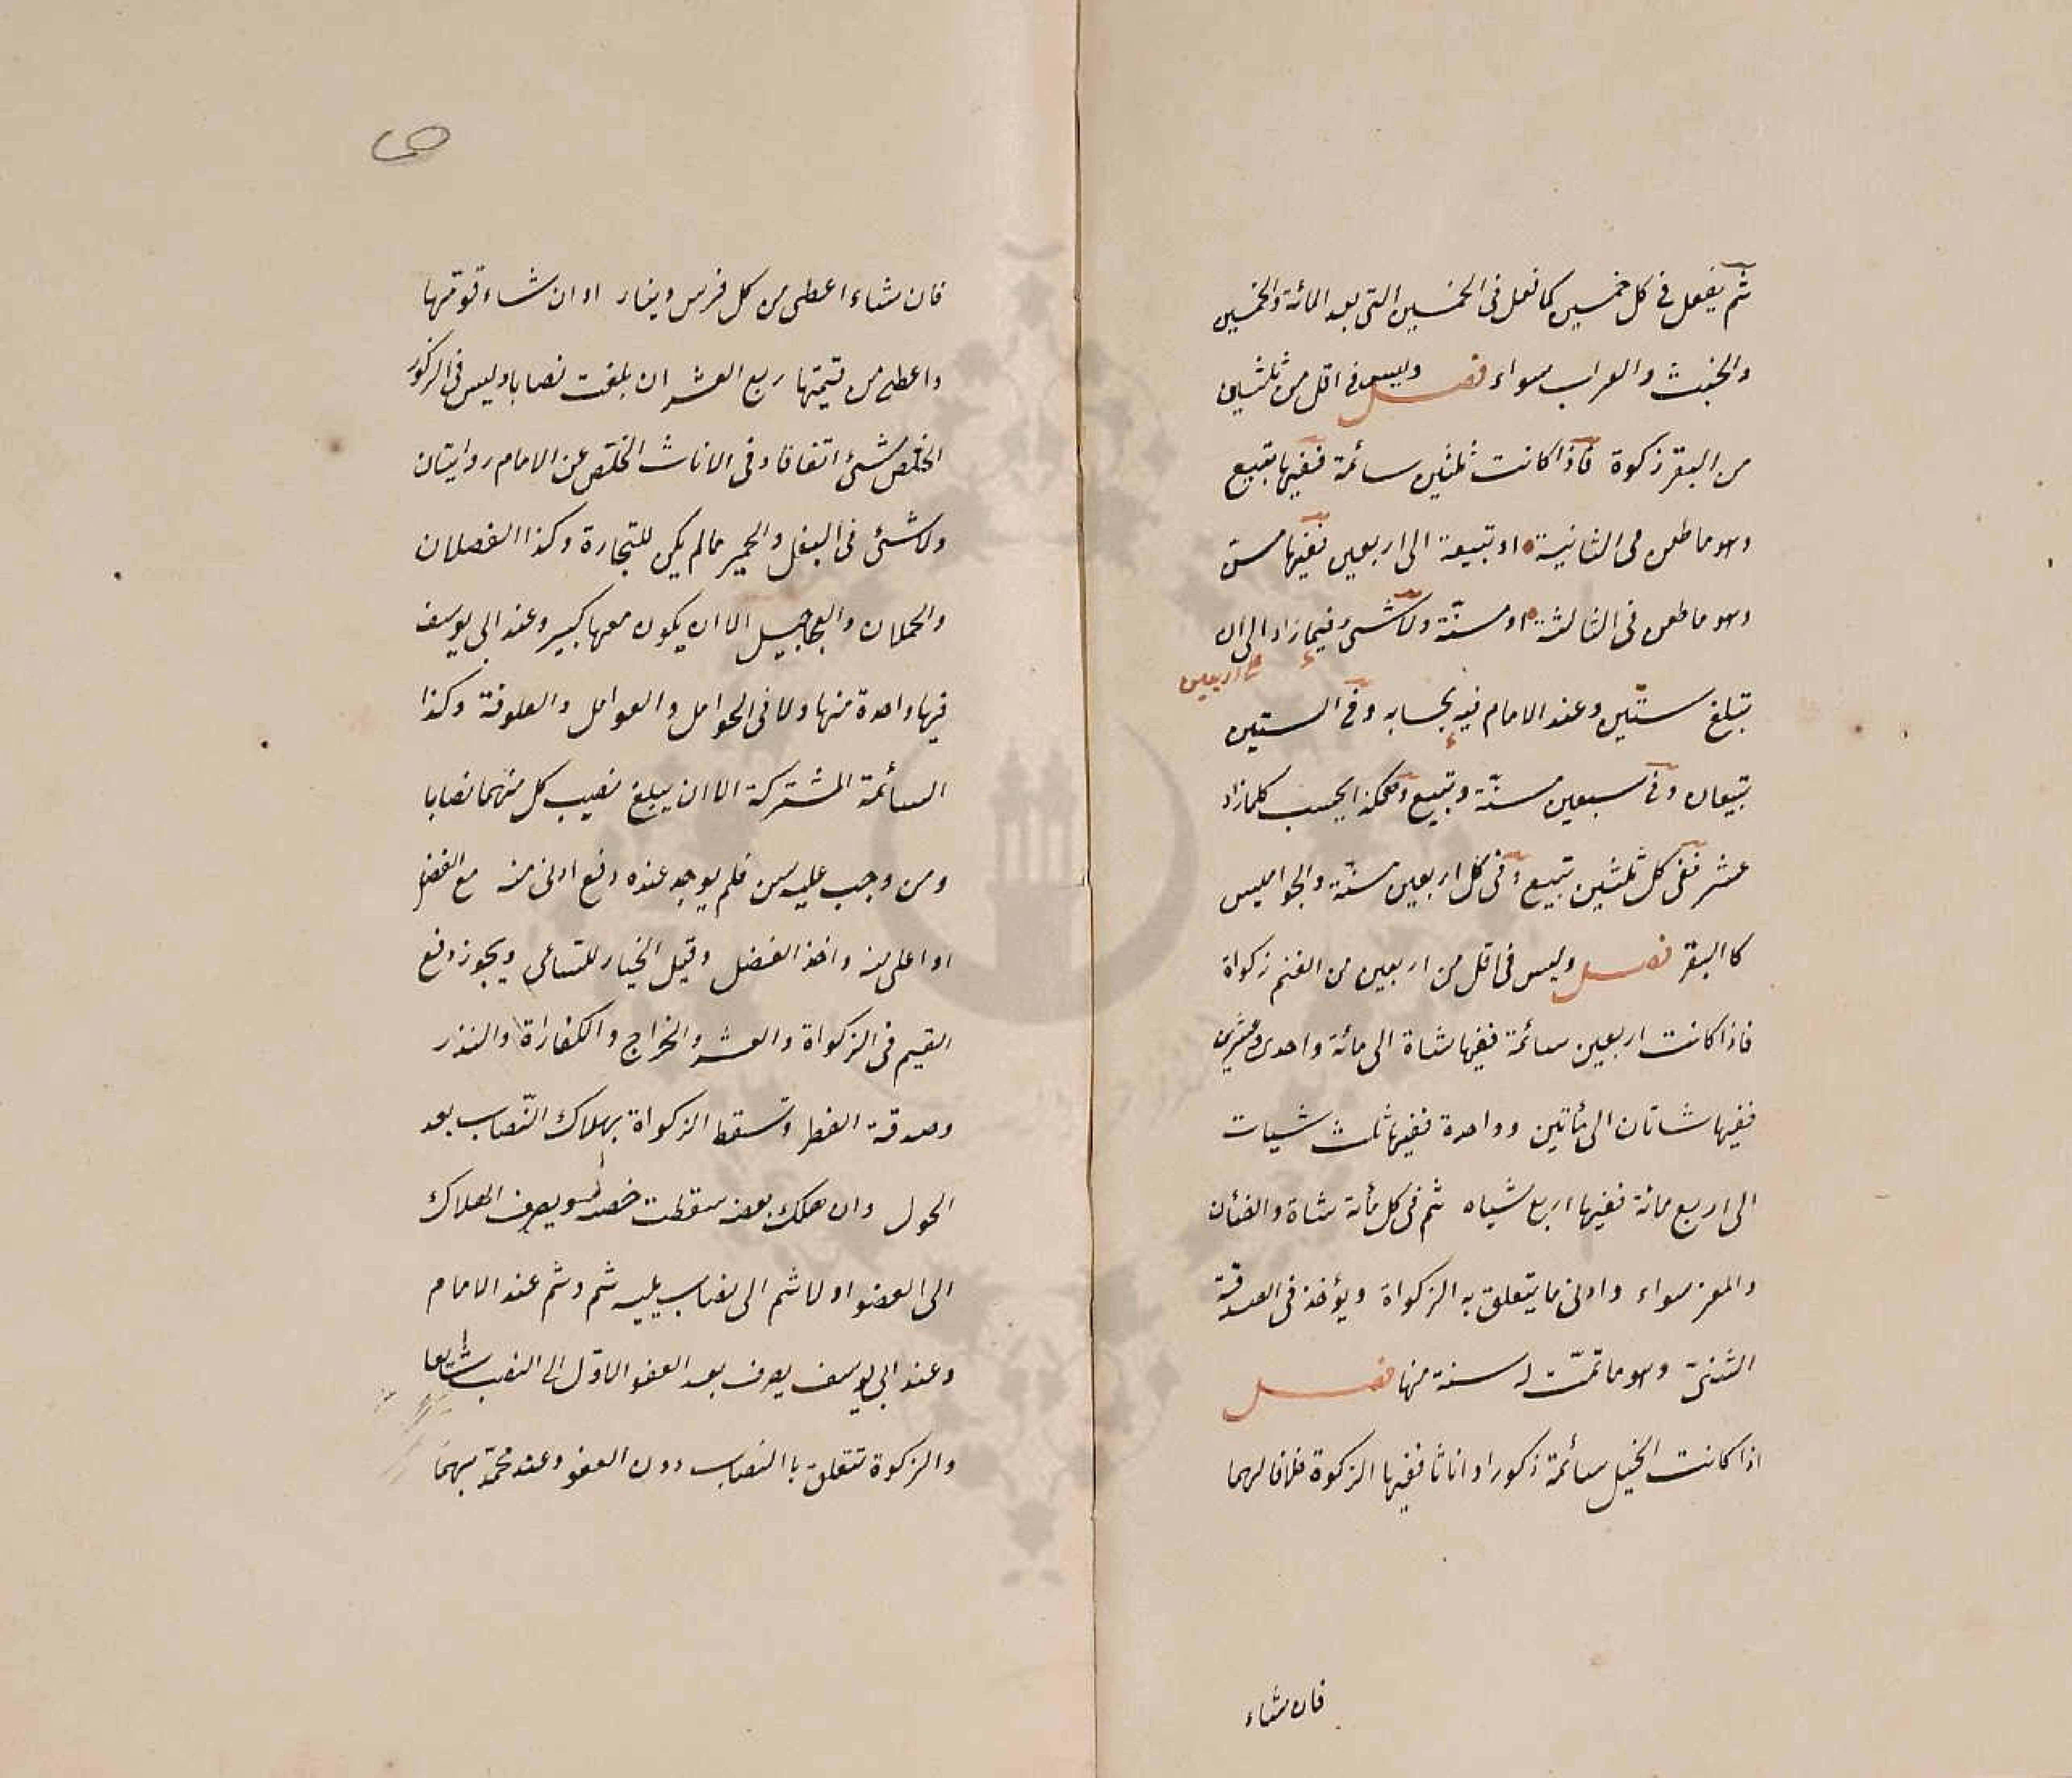 ثم يفعل فى كل خمسين كما فعل فى الخمسين التى بعد المائة والخمسين
والبخت والعراب سواء فصل وليس فى اقل من ثلثين
من البقر زكوة فاذا كانت ثلثين سائمة ففيها تبيع
وهو ما طعن فى الثانية او تبيعة الى اربعين ففيها مسن
وهو ما طعن فى الثالثة او مسنّة ولا شئ فيما زاد الى ان
على اربعين
تبلغ ستّين وعند الامام فيه بحسابه وفى الستين
تبيعان وفى سبعين مسنّة وتبيع وهكذا يحسب كلما زاد
عشر ففى كل ثلثين تبيع وفى كل اربعين مسنّة والجواميس
كا البقر فصل وليس فى اقل من اربعين من الغنم زكواة
فاذا كانت اربعين سائمة ففيها شاة الى مائة واحدى وعشرين
ففيها شاتان الى مأتين وواحدة ففيها ثلث شيات
الى اربع مائة ففيها اربع شياه ثم فى كل مأئة شاة والضأن
والمعز سواء وادنى ما يتعلق به الزكواة ويؤخذ فى الصدقة
الثنىّ وهو ما تمّت له سنة منها فصل
اذا كانت الخيل سائمة ذكورا واناثا ففيها الزكوة خلافا لهما
فان شاء
فان شاء اعطى من كل فرس دينار او ان شاء قوّمها
واعطى من قيمتها ربع العشر ان بلغت نصابا وليس فى الذكور
الخلّص شئ اتفاقا وفى الاناث الخلّص عن الامام روايتان
ولا شئ فى البغل والحمير مالم يكن للتجارة وكذا الفصلان
والحملان والعجاجيل الا ان يكون معها كبير وعند ابى يوسف
فيها واحدة منها ولا فى الحوامل والعوامل والعلوفة وكذا
السائمة المشتركة الا ان يبلغ نصيب كل منهما نصابا
ومن وجب عليه سن فلم يوجد عنده دفع ادنى منه مع الفضل
او اعلى منه واخذ الفضل وقيل الخيار للساعى ويجوز دفع
القيم فى الزكواة والعشر والخراج والكفارة والنذر
وصدقة الفطر وتسقط الزكواة بهلاك النّصاب بعد
الحول وان هلك بعضه سقطت حصته ويصرف الهلاك
الى العفو اولا ثم الى نصاب يليه ثم وثم عند الامام
وعند ابى يوسف يصرف بعد العفو الاوّل الى النصب شايعا
والزكوة تتعلق با النصاب دون العفو وعند محمّد بهما